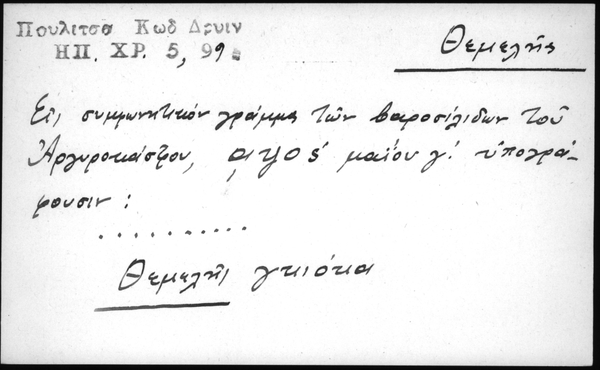 Πουλιτσα Κωδ Δρυιν
ΗΠ. ΧΡ. 5, 99
Θεμελῆς
Εἰς συμφωνητικόν γράμμα τῶν βαροσιλιδων τοῦ
Ἀργυροκάστρου, αψος μαΐου γ! ὑπογρά-
φουσιν :
..........
Θεμελῆς γκιόκα